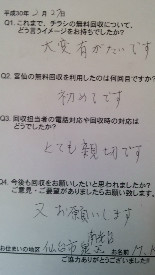 平成30年2月27日
Q1.これまで、チラシの無料回収について、
どう言うイメージをお持ちでしたか?
大変有がたいです
Q2.当社の無料回収を利用したのは何回目ですか?
初めてです
Q3.回収担当者の電話対応や回収時の対応は
どうでしたか?
とても親切です
Q4.今後も回収をお願いしたいと思われましたか?
ご意見・ご要望がありましたらお願い致します。
又お願いします
お住まいの地区 仙台市泉区 お名前
ご協力ありがとうございました